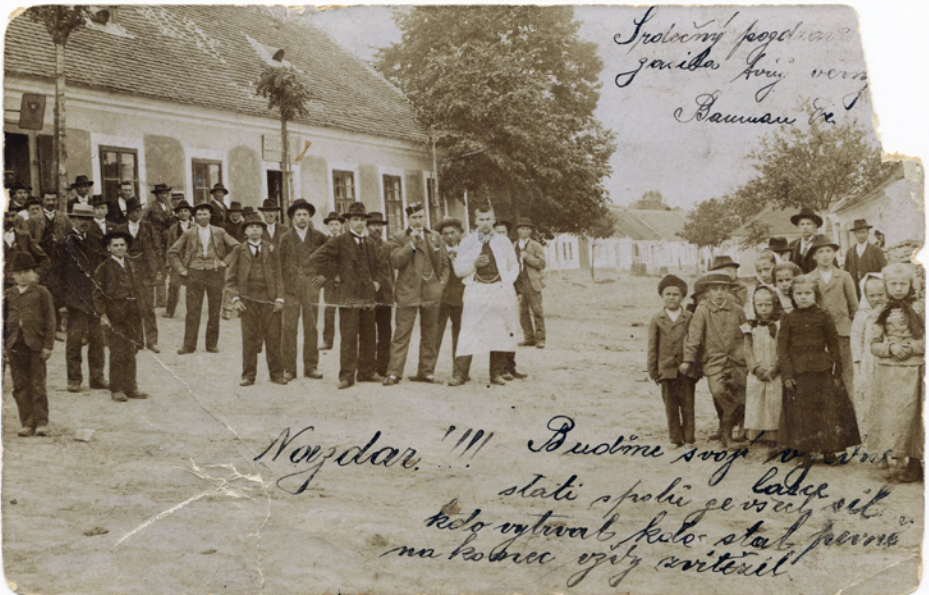 Srdečný pozdrav
zasila Tvůj věrný
Bauman
Nazdar!!!
Buďme svoji
lasce
stati spolu
kdo vytrval kdo stal pevně
na konec vždy zvitězil